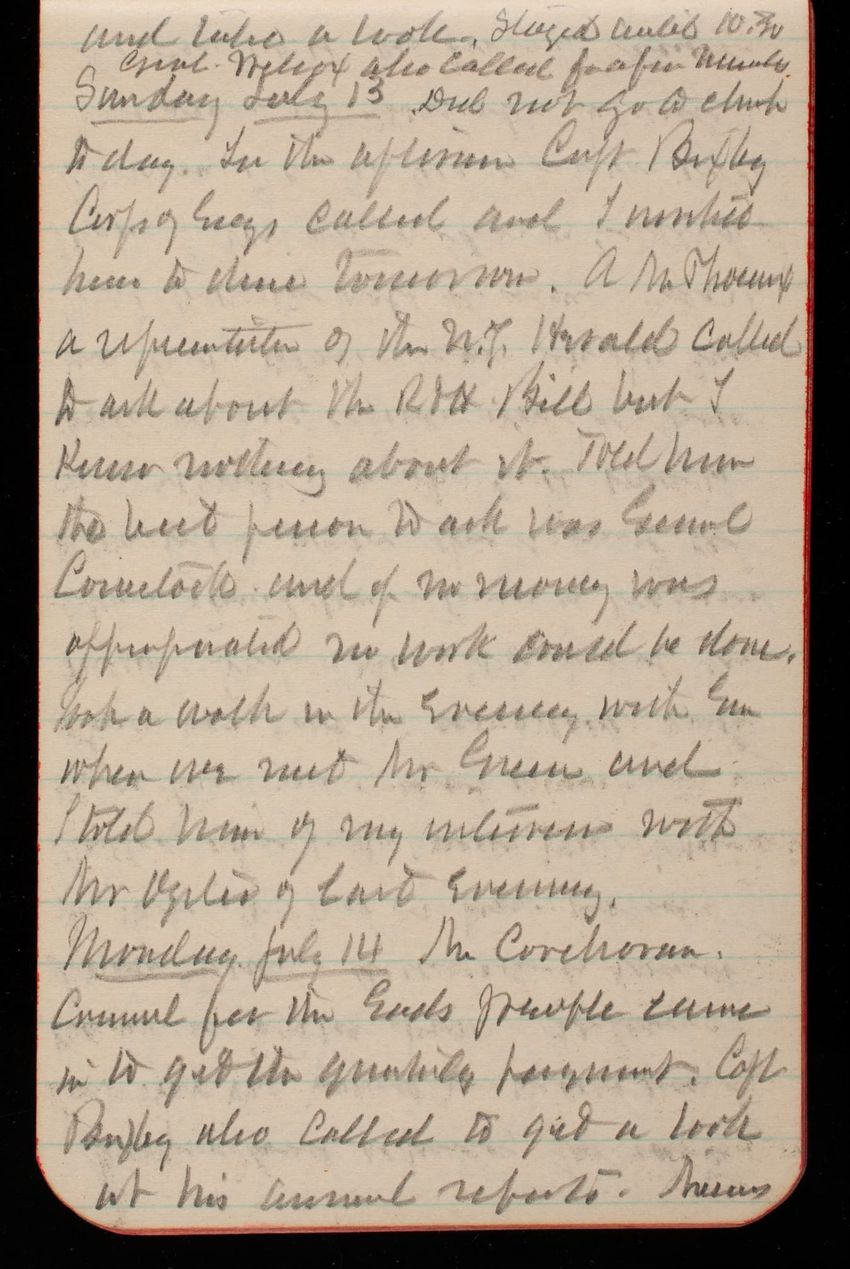 and take a look. Stayed until 10.30
Genl. Wilcox also called for a few minutes
Sunday July 13 Did not go to church
to day. In the afternoon Capt Bixby
Corps of Engs called and I invited
him to dine tomorrow. A Mr Phoenix
a representative of the N.Y. Herald called
to ask about the R & H Bill but I
Knew nothing about it. Told him
the best person to ask was General
Comstock and if no money was
appropriated no work could be done.
Took a walk in the Evening with
when we met Mr Green and
I told him of my interview with
Mr of last Evening.
Monday July 14 Mr Corchoran.
Counsel for the Eads people came
in to get the quarterly payment. Capt
Bixby also called to get a look
at his annual reports.